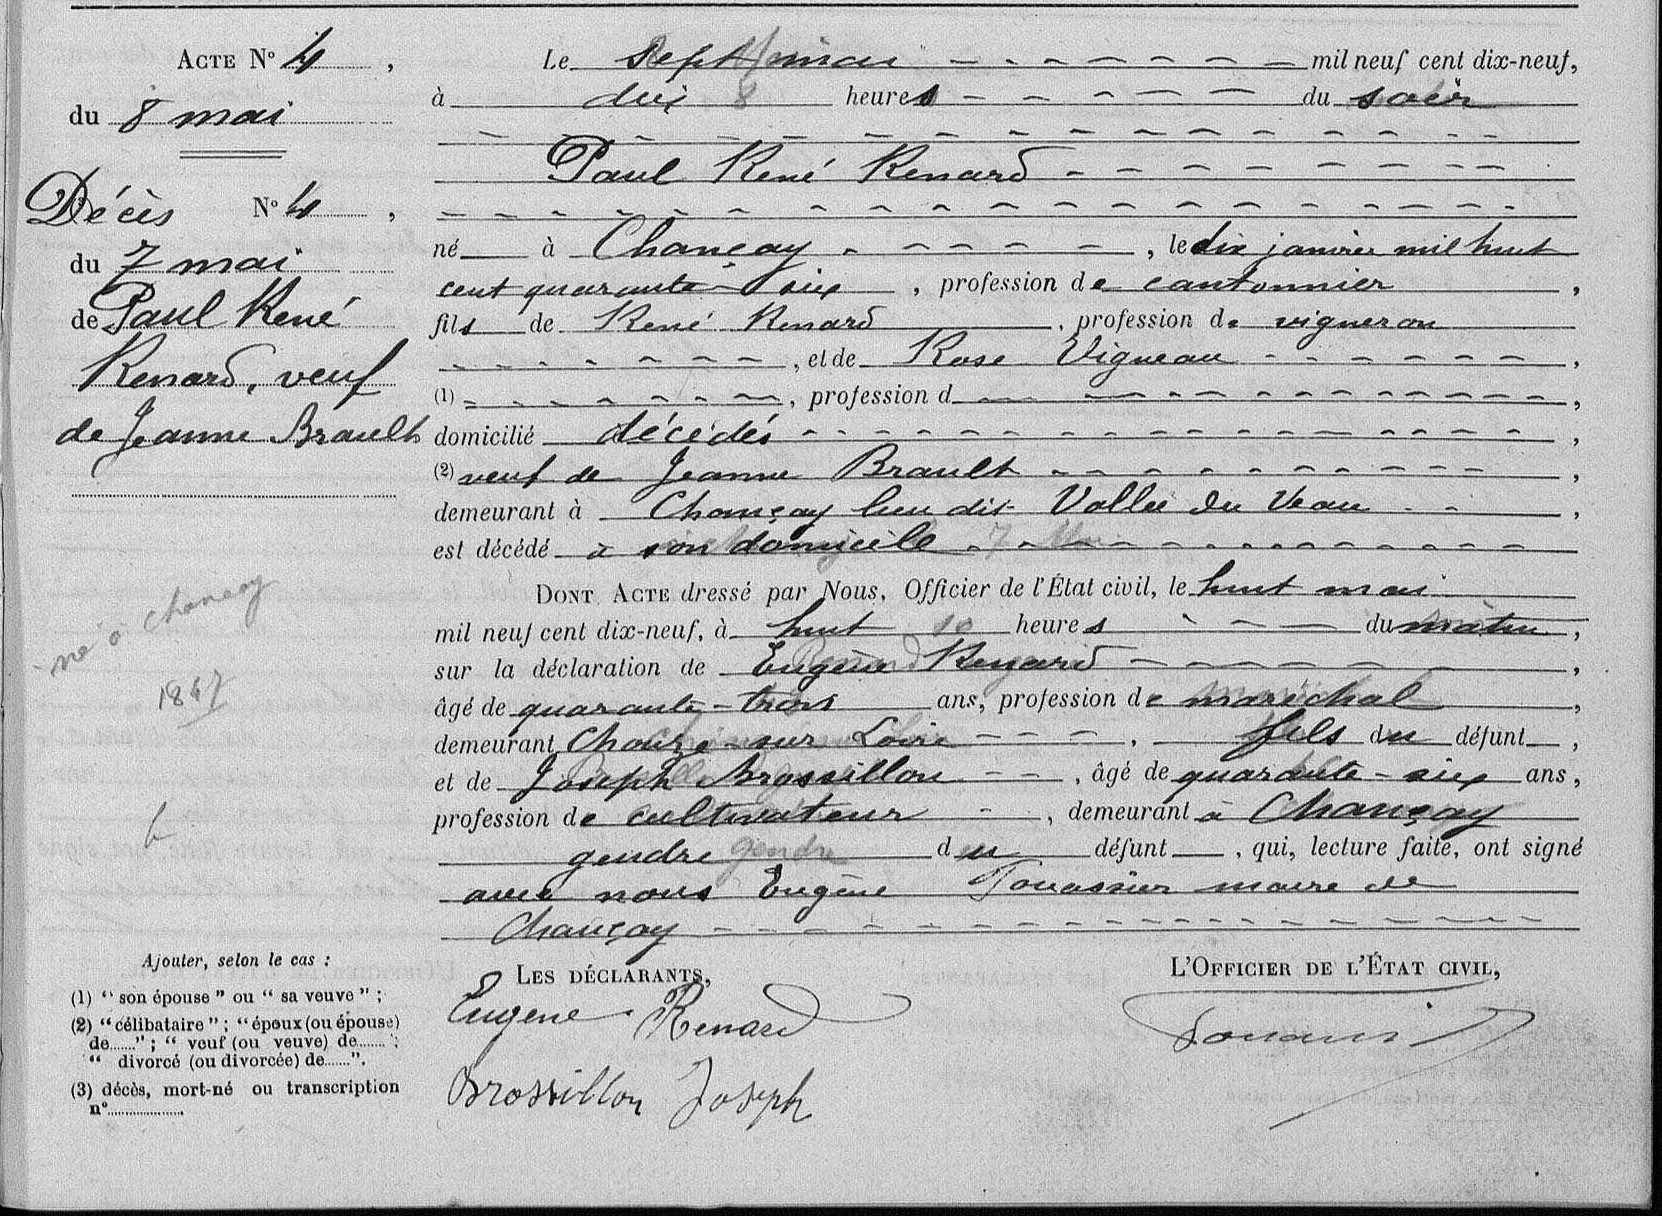 Acte No 4,
du 8 mai
Décès No 4,
du 7 mai
de Paul René
Renard, veuf
de Jeanne Brault
né à Chancay
1847
Le sept mai mil neuf cent dix-neuf,
à dix 8 heures du soir
Paul René Renard
né à Chançay, le dix janvier mil huit
cent quarante-six, profession de cantonnier,
fils de René Renard, profession de vigneron
, et de Rose Vigneau,
(1), profession d,
domicilié décédés,
(2) veuf de Jeanne Brault,
demeurant à Chançay lieu dit Vallée du Veau,
est décédé à son domicile
Dont Acte dressé par Nous, Officier de l'État civil, le huit mai
mil neuf cent dix-neuf, à huit 10 heures du matin,
sur la déclaration de Eugène Renard,
âgé de quarante-trois ans, profession de maréchal,
demeurant Chouzé-sur Loire, fils du défunt,
et de Joseph Brossillon, âgé de quarante-six ans,
profession de cultivateur, demeurant à Chançay
gendre gendre du défunt, qui, lecture faite, ont signé
avec nous Eugène maire de
Chançay
Les déclarants,
L'Officier de l'État civil,
Eugène Renard
Brossillon Joseph
Ajouter, selon le cas :
(1) “ son épouse ” ou “ sa veuve ” ;
(2) “ célibataire ” ; “ époux (ou épouse)
de......” ; “ veuf (ou veuve) de....... ;
“ divorcé (ou divorcée) de......”.
(3) décès, mort-né ou transcription
n°....................